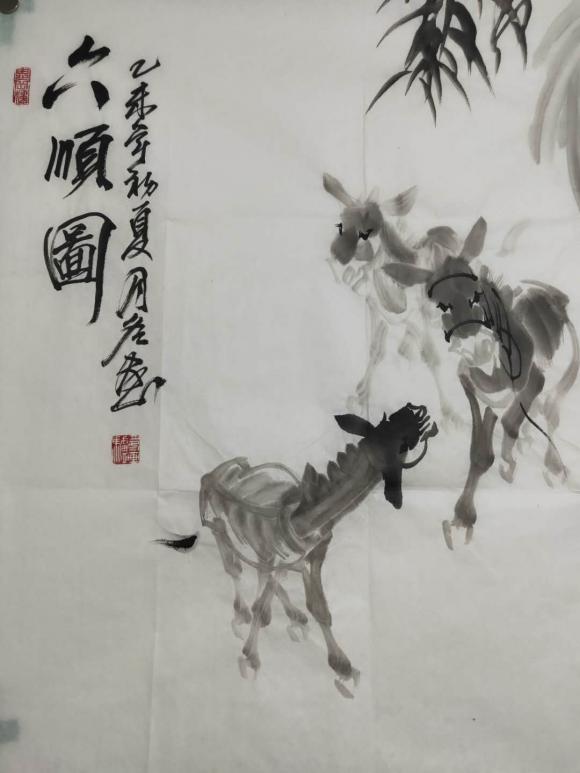 六順圖
乙未年初夏月君画